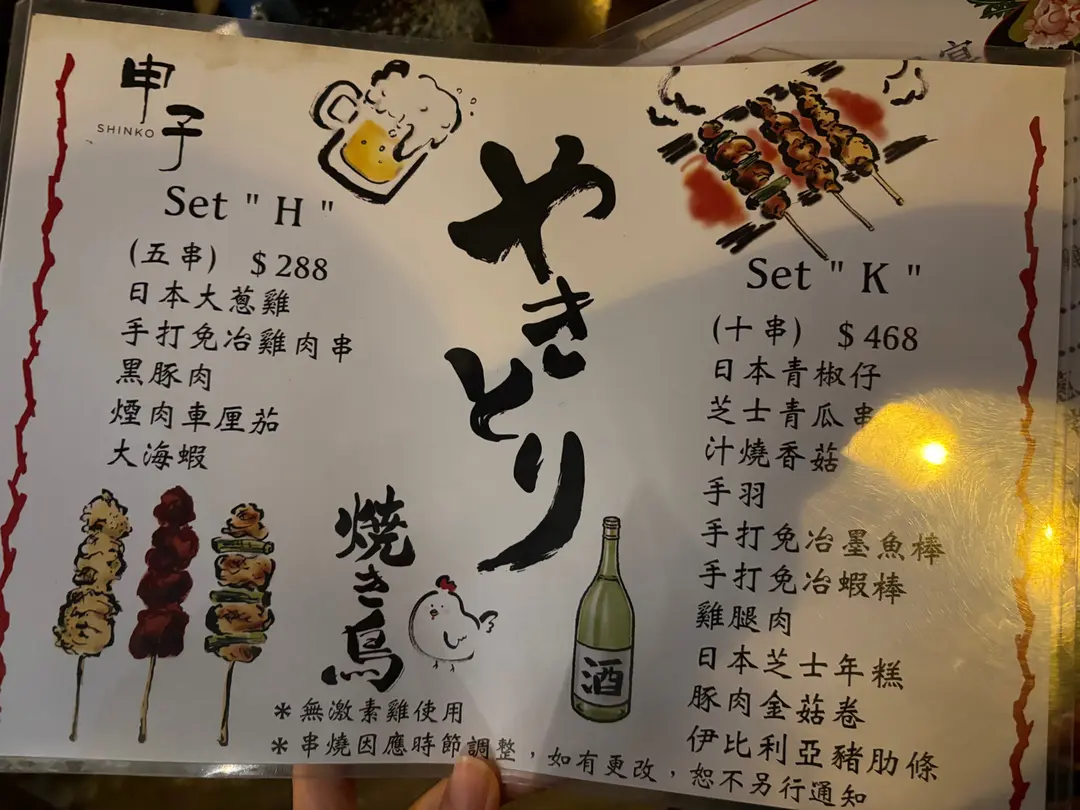 申子
SHINKO
Set " H "
(五串) $288
日本大蔥雞
手打免冶雞肉串
黑豚肉
煙肉車厘茄
大海蝦
やきとり
焼き鳥
酒
Set " K "
(十串) $468
日本青椒仔
芝士青瓜串
汁燒香菇
手羽
手打免冶墨魚棒
手打免冶蝦棒
雞腿肉
日本芝士年糕
豚肉金菇卷
伊比利亞豬肋條
*無激素雞使用
*串燒因應時節調整，如有更改，恕不另行通知